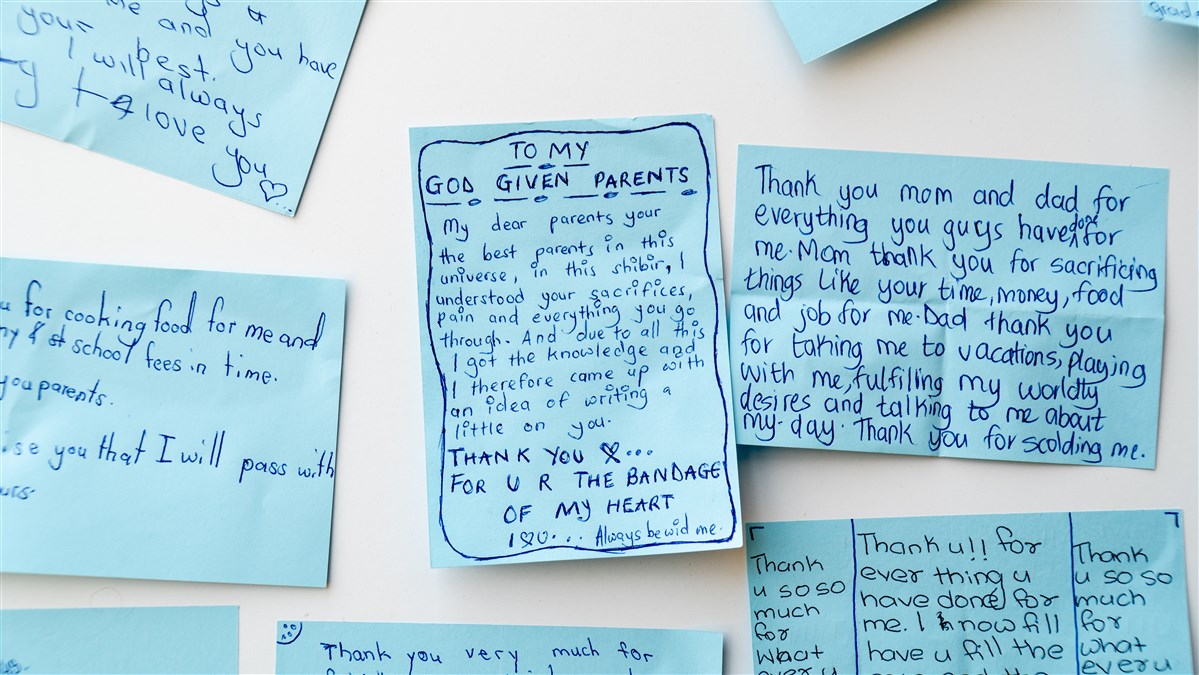 me and you have
your best.
I will always
love you
TO MY
GOD GIVEN PARENTS
My dear parents your
the best parents in this
universe, in this shibir, I
understood your sacrifices,
pain and everything you go
through. And due to all this
I got the knowledge and
I therefore came up with
an idea of writing a
little on you.
THANK YOU ...
FOR U R THE BANDAGE
OF MY HEART
I U... Always be wid me.
Thank you mom and dad for
everything you guys have done for
me. Mom thank you for sacrificing
things like your time, money, food
and job for me. Dad thank you
for taking me to vacations, playing
with me, fulfiling my worldly
desires and talking to me about
my day. Thank you for scolding me.
for cooking food for me and
school fees in time.
you parents.
you that I will pass with
Thank
u so so
much
for
what
ever u
Thank u!! for
ever thing u
have done for
me. I know fill
have u fill the
Thank
u so so
much
for
what
ever u
Thank you very much for